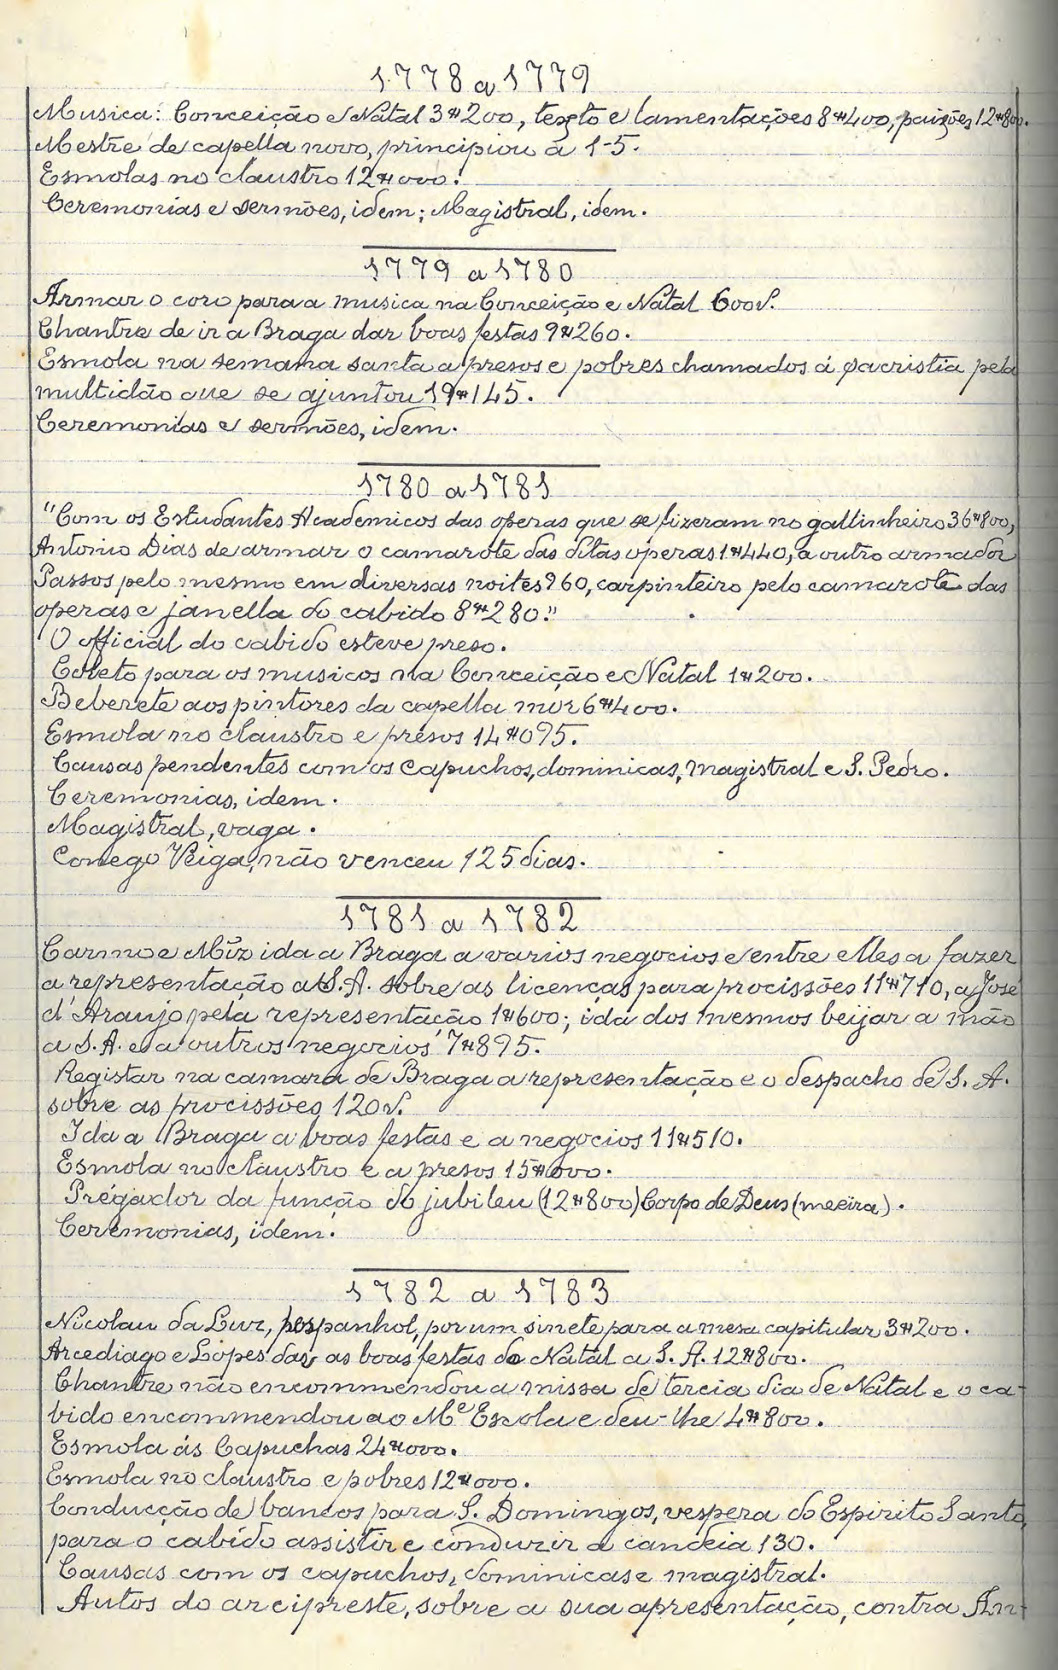 1778 a 1779
Musica: Conceição e Natal 3#200, texto e lamentações 8#400, paixões 12#800.
Mestre de capella novo, principiou a 1-5.
Esmolas no claustro 12#000.
Ceremonias e sermões, idem; Magistral, idem.
1779 a 1780
Armar o coro para a musica na Conceição e Natal 600rs.
Chantre de ir a Braga dar boas festas 9#260.
Esmola na semana santa a presos e pobres chamados á sacristia pela
multidão que se ajuntou 19#145.
Ceremonias e sermões, idem.
1780 a 1781
"Com os Estudantes Academicos das operas que se fizeram no gallinheiro 36#800,
Antonio Dias de armar o camarote das ditas operas 1#440, a outro armador
Passos pelo mesmo em diversas noites 960, carpinteiro pelo camarote das
operas e janella do cabido 8#280."
O official do cabido esteve preso.
Coreto para os musicos na Conceição e Natal 1#200.
Beberete aos pintores da capella mór 6#400.
Esmola no claustro e presos 14#095.
Causas pendentes com os capuchos, dominicas, magistral e S. Pedro.
Ceremonias, idem.
Magistral, vaga.
Conego Veiga, não venceu 125 dias.
1781 a 1782
Carmo e Miz ida a Braga a varios negocios e entre elles a fazer
a representação a S. A. sobre as licenças para procissões 11#710, a José
d'Araujo pela representação 1#600; ida dos mesmos beijar a mão
a S. A. e a outros negocios 7#895.
Registar na camara de Braga a representação e o despacho de S. A.
sobre as procissões 120rs.
Ida a Braga a boas festas e a negocios 11#510.
Esmola no claustro e a presos 15#000.
Prégador da funcção do jubileu (12#800) Corpo de Deus (meeira).
Ceremonias, idem.
1782 a 1783
Nicolau da Luz, hespanhol, por um sinete para a mesa capitular 3#200.
Arcediago e Lopes das as boas festas do Natal a S. A. 12#800.
Chantre não encommendou a missa de tercia dia de Natal e o ca-
bido encommendou ao Me Escola e deu-lhe 4#800.
Esmola ás Capuchas 24#000.
Esmola no claustro e pobres 12#000.
Conducção de bancos para S. Domingos, vespera do Espirito Santo,
para o cabido assistir e conduzir a candeia 130.
Causas com os capuchos, dominicas e magistral.
Autos do arcipreste, sobre a sua apresentação, contra An-